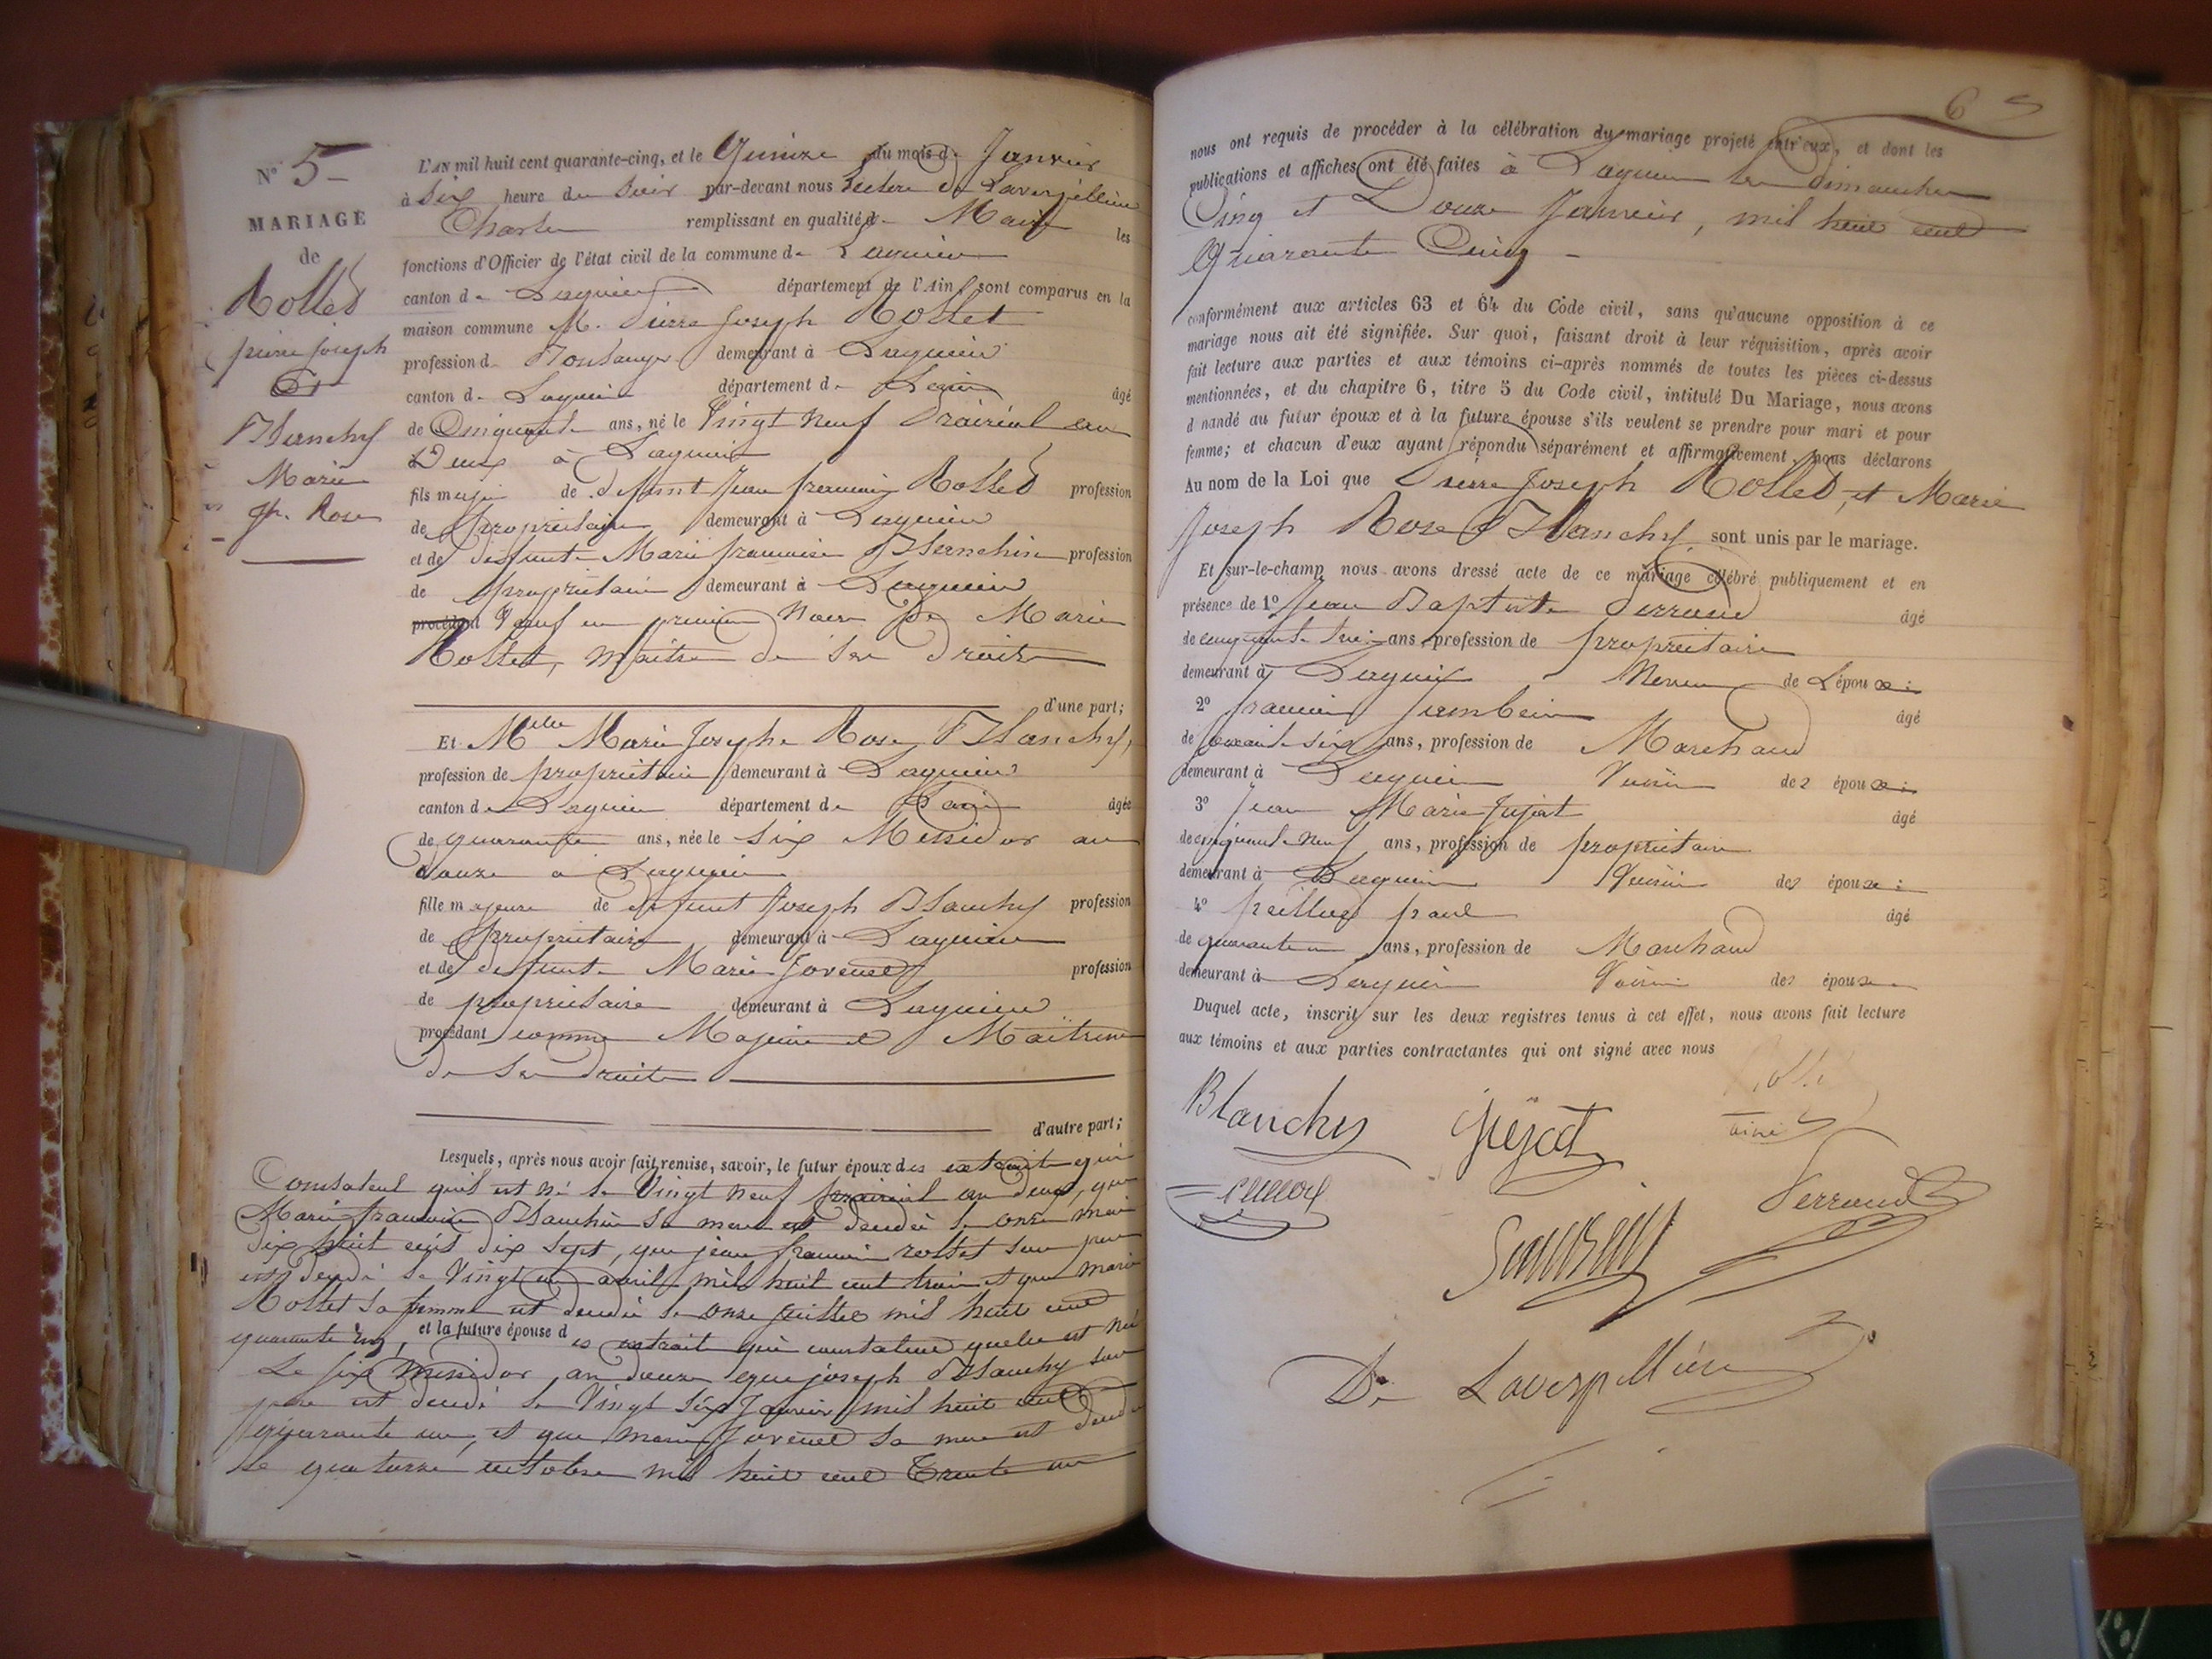 N° 5
MARIAGE
de
Rollet
pierre joseph
Et
Blanchy
Marie
jh. Rose
L'AN mil huit cent quarante-cinq, et le Quinze du mois de Janvier
à Six heure du Soir par-devant nous de Laverpillière
Charles remplissant en qualité de Maire les
fonctions d'Officier de l'état civil de la commune de Lagnieu
canton de Lagnieu département de l'Ain, sont comparus en la
maison commune M. Pierre Joseph Rollet
profession d Boulanger demeurant à Lagnieu
canton de Lagnieu département de Lain âgé
de Cinquante ans, né le Vingt Neuf Prairial an
Deux à Lagnieu
fils majeur de defunt Jean francois Rollet profession
de propriétaire demeurant à Lagnieu
et de defunte Marie francoise Blanchin profession
de propriétaire demeurant à Lagnieu
procédant Veuf en premier Noce De Marie
Rollet, Maître de Ses Droits
d'une part;
Et Melle Marie Josephe Rose Blanchy,
profession de propriétaire demeurant à Lagnieu
canton de Lagnieu département de Lain âgée
de quarante ans, née le Six Messidor an
douze à Lagnieu
fille majeure de defunt Joseph Blanchy profession
de propriétaire demeurant à Lagnieu
et de defunte Marie Jovenet profession
de propriétaire demeurant à Lagnieu
procédant comme Majeure et Maitresse
de Ses Droits
d'autre part;
Lesquels, après nous avoir fait remise, savoir, le futur époux des extraits qui
Constatent quil est né le Vingt neuf prairial an deux, que
Marie francoise Blanchin Sa mere est décédé le onze mai
dix huit cent dix Sept, que jean francois rollet son pere
est décédé le Vingt un avril mil huit cent trois et que marie
Rollet Sa femme est décédé le onze juillet mil huit cent
quarante et la future épouse des extrait qui constatent quelle est né
Le Six Messidor an douze que joseph Blanchy son
pere est décédé le Vingt Six Janvier mil huit cent
quarante un, et que Marie Jovenet Sa mere est décédé
Le quatorze octobre mil huit cent Trente un
6
nous ont requis de procéder à la célébration du mariage projeté entr'eux, et dont les
publications et affiches ont été faites à Lagnieu les dimanches
Cinq et Douze Janvier, mil huit cent
Quarante Cinq
conformément aux articles 63 et 64 du Code civil, sans qu'aucune opposition à ce
mariage nous ait été signifiée. Sur quoi, faisant droit à leur réquisition, après avoir
fait lecture aux parties et aux témoins ci-après nommés de toutes les pièces ci-dessus
mentionnées, et du chapitre 6, titre 5 du Code civil, intitulé Du Mariage, nous avons
d mandé au futur époux et à la future épouse s'ils veulent se prendre pour mari et pour
femme; et chacun d'eux ayant répondu séparément et affirmativement, nous déclarons
Au nom de la Loi que Pierre Joseph Rollet, et Marie
Joseph Rose Blanchy sont unis par le mariage.
Et sur-le-champ nous avons dressé acte de ce mariage célébré publiquement et en
présence de 1° Jean Baptiste Perraud âgé
de cinquante ans, profession de propriétaire
demeurant à Lagnieu Neveu de L'époux;
2° francois âgé
de Six ans, profession de Marchand
demeurant à Lagnieu Voisin des époux;
3° Jean Marie Jujat âgé
de cinquante Neuf ans, profession de propriétaire
demeurant à Lagnieu Voisin des époux;
4° paul âgé
de quarante ans, profession de Marchand
demeurant à Lagnieu Voisin des époux
Duquel acte, inscrit sur les deux registres tenus à cet effet, nous avons fait lecture
aux témoins et aux parties contractantes qui ont signé avec nous
Blanchy Jujat
ainé
Perraud
De Laverpillière